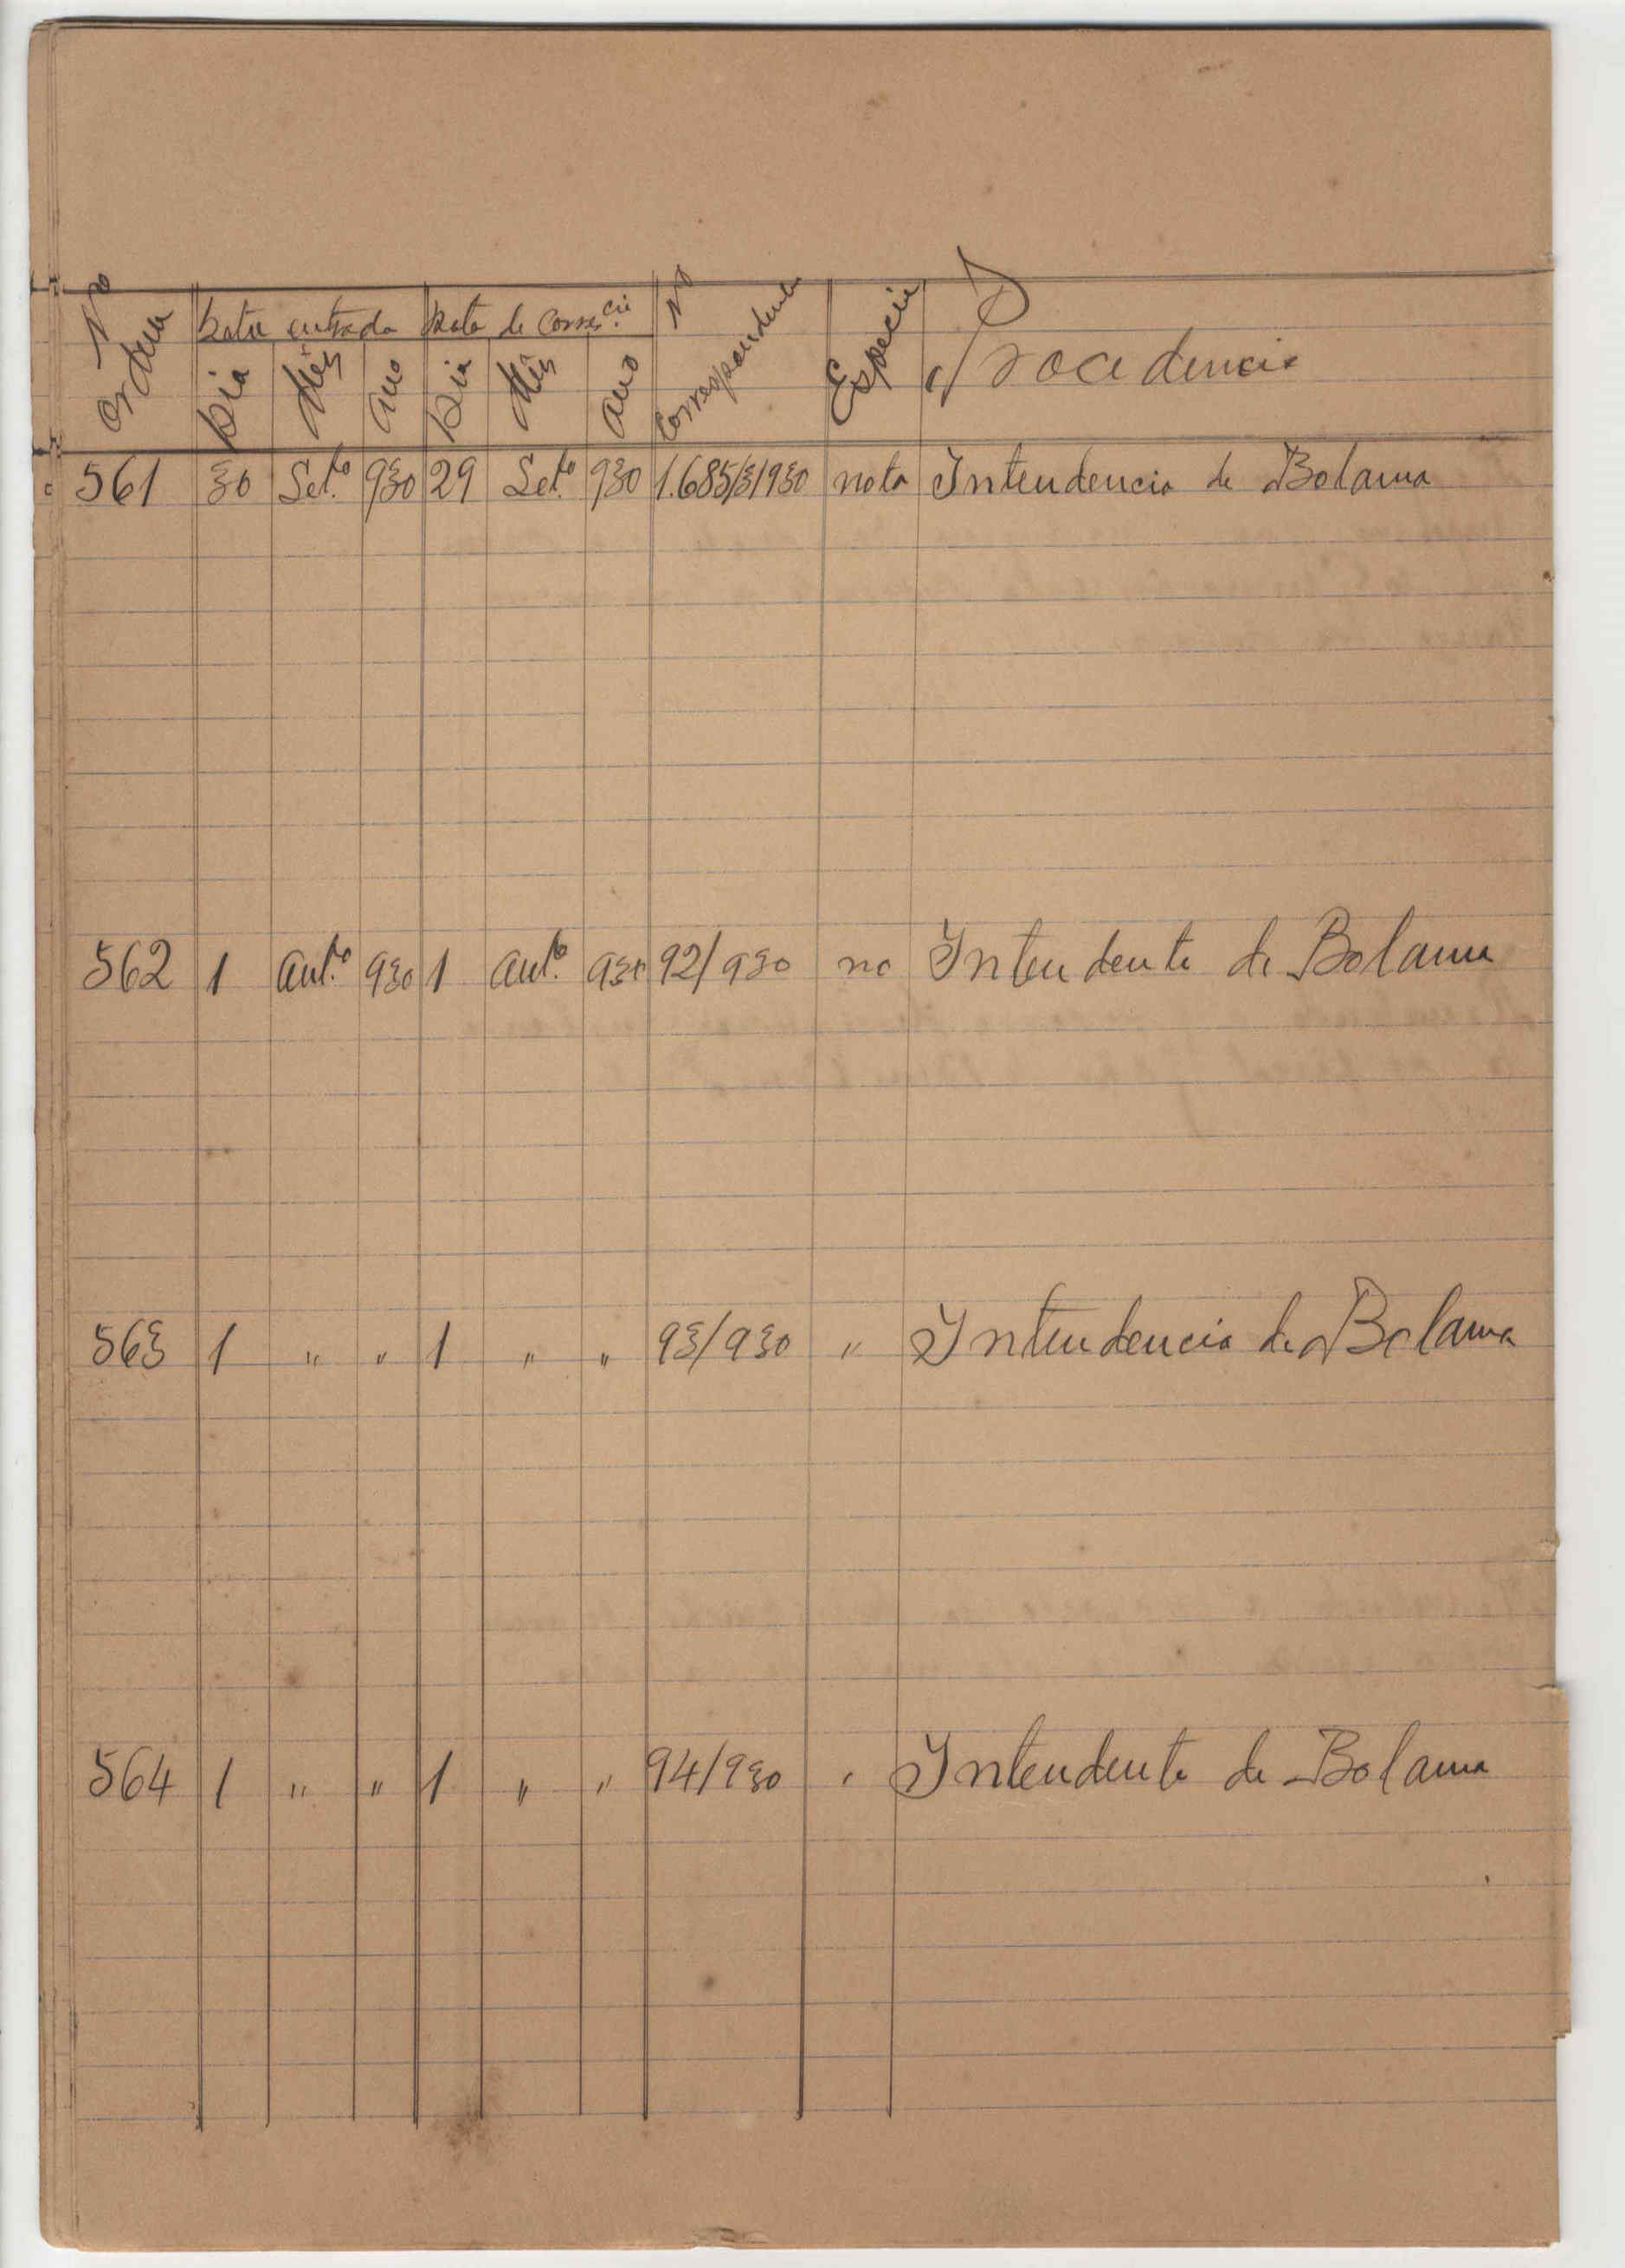 Nº Ordem Data entrada Data de Corresp.cia Nº Correspondencia Especie Procedencia
Dia Mês Ano Dia Mês Ano
561 30 Set.º 930 29 Set.º 930 1.685/3/930 nota Intendencia de Bolama
562 1 Out.º 930 1 Out.º 930 92/930 no Intendente de Bolama
563 1 " " 1 " " 93/930 " Intendencia de Bolama
564 1 " " 1 " " 94/930 " Intendente de Bolama